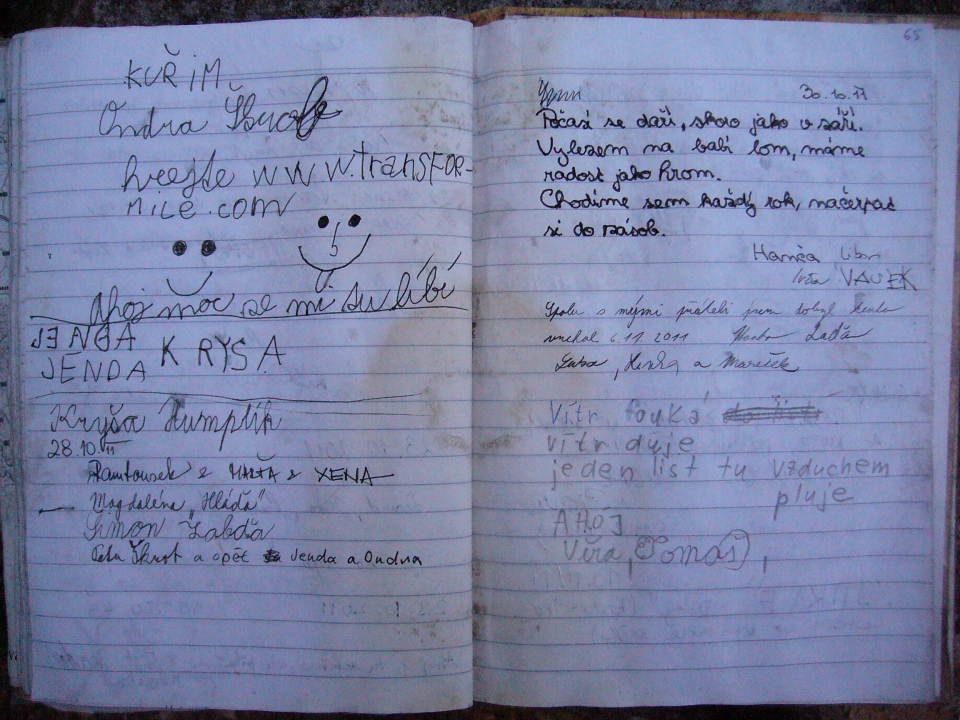 KUŘIM
Ondra Škrob
hrejte WWW.transFOR-
MiCE.com
Ahoj moc se mi su líbí
JENDA
JENDA KRYSA
Kryša Humplík
28.10.11
Ramtousek & MÁŤA & XENA
Magdaléna „Hláďa"
Šimon Žabďa
Petr Škrot a opět Jenda a Ondra
65
30.10.11
Počasí se daří, skoro jako v září.
Vylezem na babí lom, máme
radost jako hrom.
Chodíme sem každý rok, načerpat
si do zásob.
Hanča Libor
VAŠEK
Spolu s mými přáteli jsem dobyl tento
vrchol 6.11.2011 Laďa
Luboš, a Mareček
Vítr fouká
vítr duje
jeden list tu vzduchem
pluje
AHOJ
Věra, Tomáš,